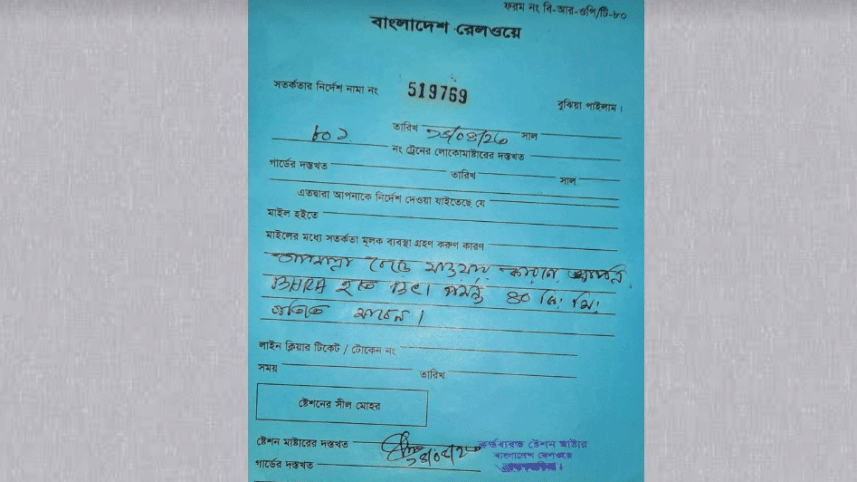 ফরম নং বি-আর-ওপি/টি-৮০
বাংলাদেশ রেলওয়ে
সতর্কতার নির্দেশ নামা নং 519769
বুঝিয়া পাইলাম।
৮০১ তারিখ ২৪/০৪/২৬ সাল
নং ট্রেনের লোকোমাষ্টারের দস্তখত
গার্ডের দস্তখত তারিখ সাল
এতদ্বারা আপনাকে নির্দেশ দেওয়া যাইতেছে যে
মাইল হইতে
মাইলের মধ্যে সতর্কতা মূলক ব্যবস্থা গ্রহণ করুণ কারণ
তাপমাত্রা বেড়ে যাওয়ার কারনে আপনি
BHRA হতে পর্যন্ত ৪০ কি: মি:
গতিতে যাবেন।
লাইন ক্লিয়ার টিকেট / টোকেন নং
সময় তারিখ
ষ্টেশনের সীল মোহর
ষ্টেশন মাষ্টারের দস্তখত ২৪/০৪/২৬
কর্তব্যরত ষ্টেশন মাষ্টার
বাংলাদেশ রেলওয়ে
গার্ডের দস্তখত